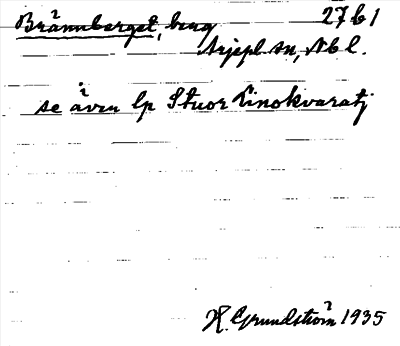 Brännberget, berg 27 b 1
Arjepl. sn, Nbl.
se även lp Stuor Kinokvaratj
H. Grundström 1935